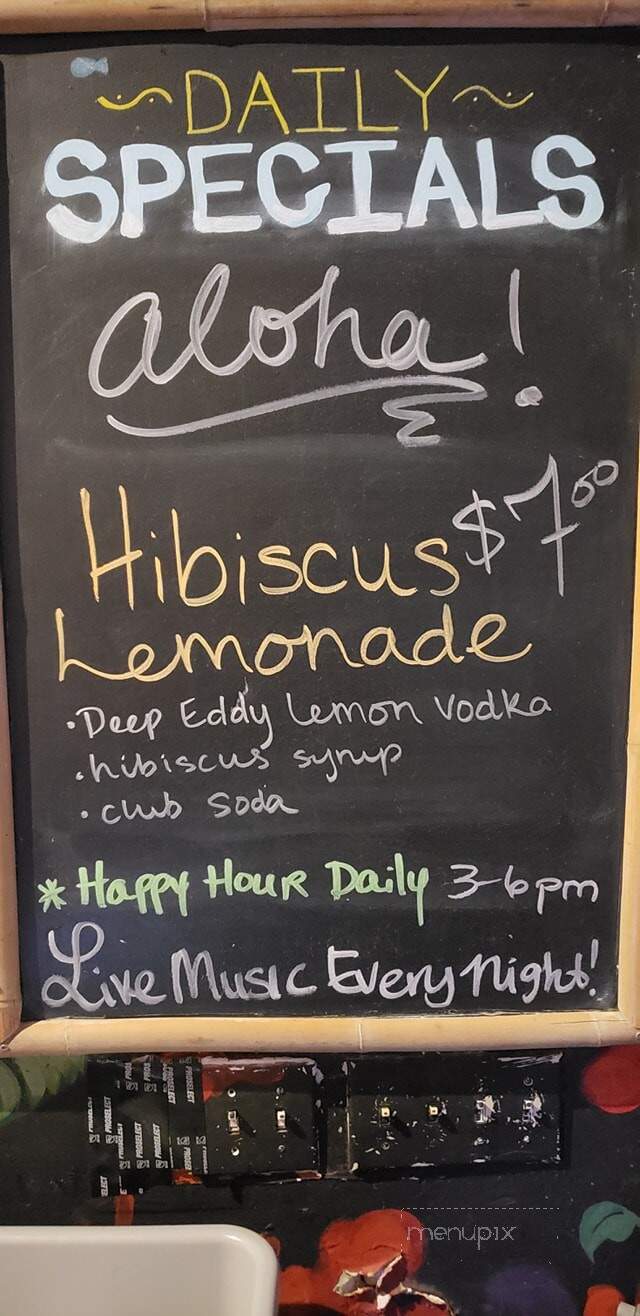 ~DAILY~
SPECIALS
aloha!
Hibiscus $7.00
Lemonade
• Deep Eddy Lemon Vodka
• hibiscus syrup
• club soda
* Happy Hour Daily 3-6pm
Live Music Every night!
PROSELECT
menupix